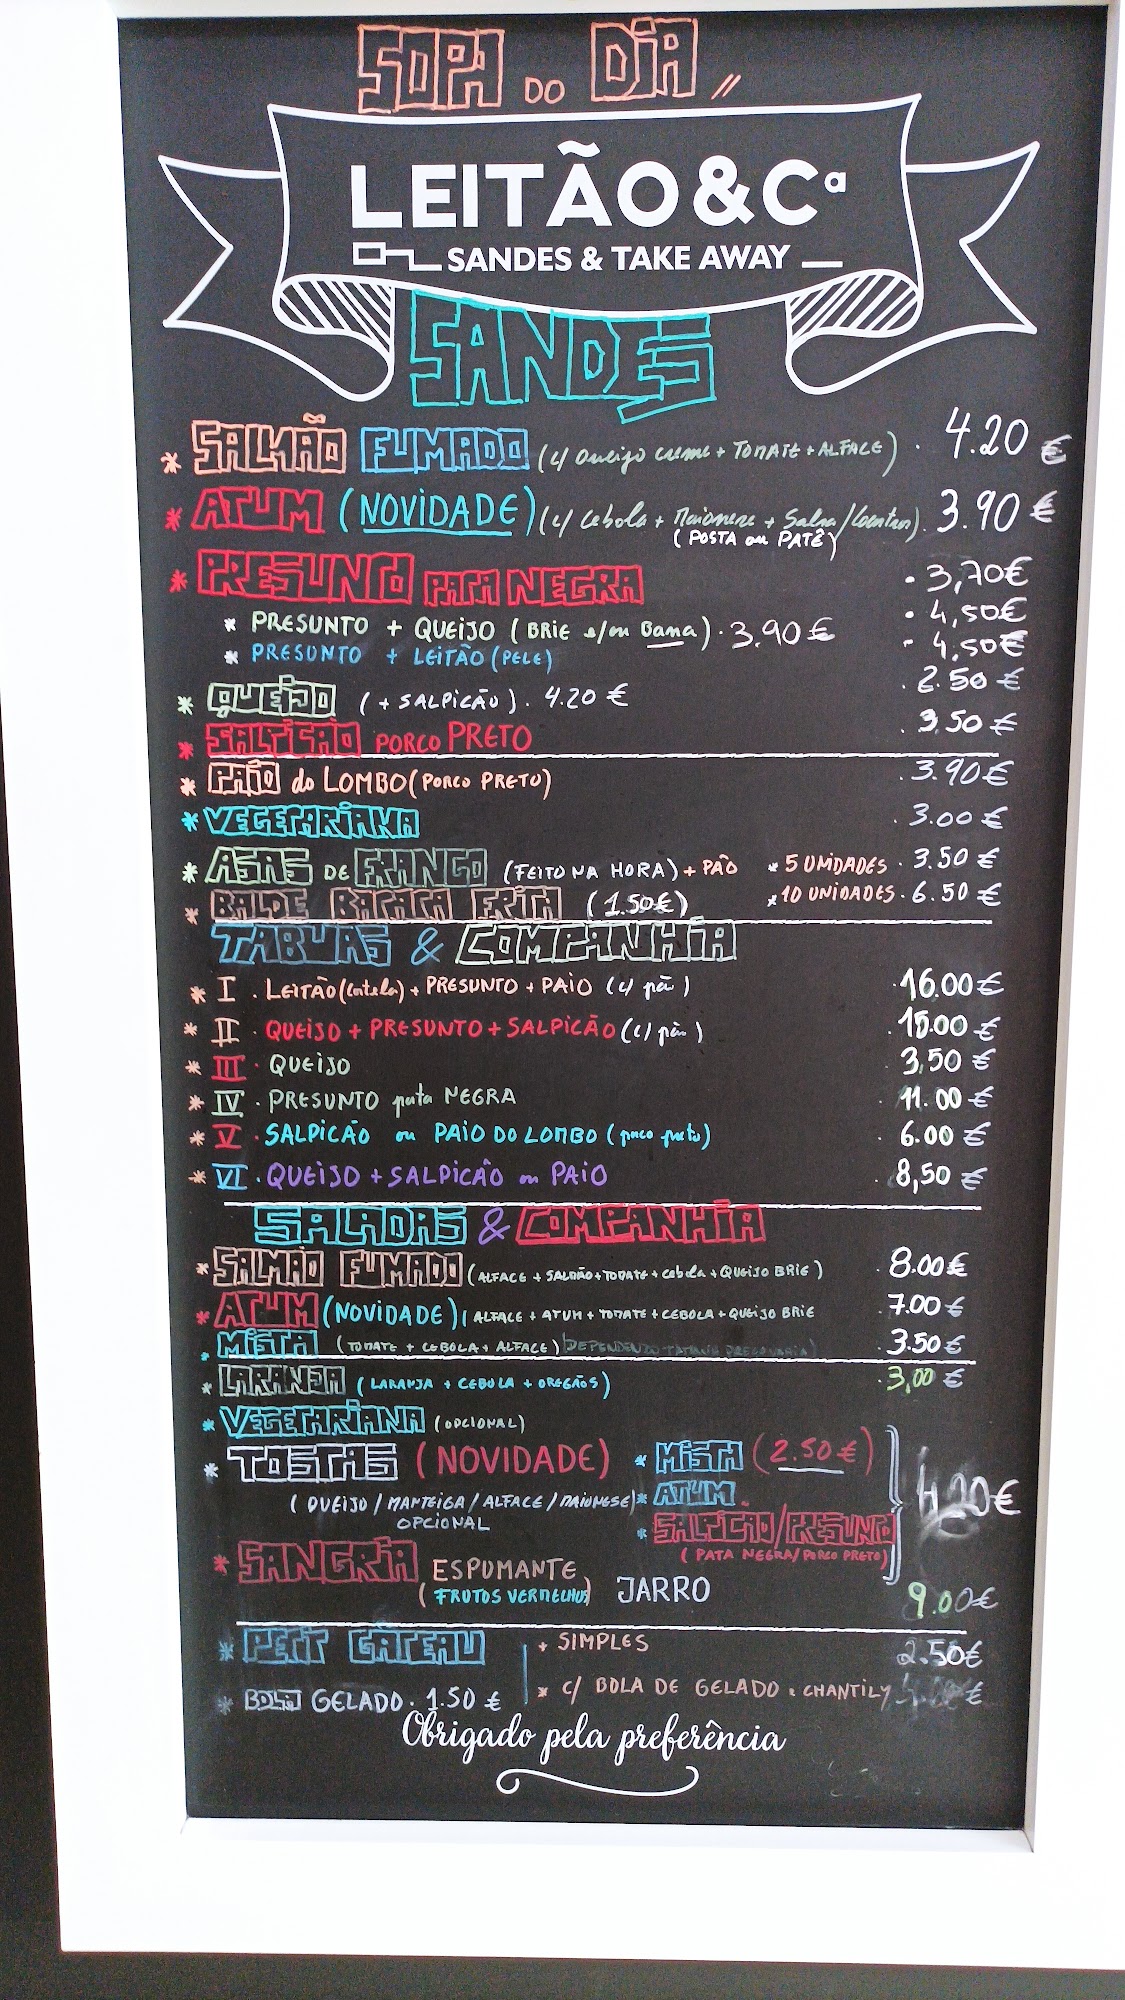 SOPA DO DIA "
LEITÃO&Cª
SANDES & TAKE AWAY
SANDES
* SALMÃO FUMADO (c/ Queijo creme + TOMATE + ALFACE) . 4.20 €
* ATUM (NOVIDADE) (c/ Cebola + Maionese + Salsa/Coentros). 3.90 €
(POSTA ou PATÊ)
* PRESUNTO PATA NEGRA . 3,70€
* PRESUNTO + QUEIJO (BRIE e/ou Bama) . 3.90 € . 4,50€
* PRESUNTO + LEITÃO (PELE) . 4,50€
* QUEIJO (+ SALPICÃO) . 4.20 € . 2.50 €
* SALPICÃO PORCO PRETO . 3,50 €
* PAIO do LOMBO (PORCO PRETO) . 3.90 €
* VEGETARIANA . 3.00 €
* ASAS DE FRANGO (FEITO NA HORA) + PÃO * 5 UNIDADES . 3.50 €
* BALDE BATATA FRITA (1.50€) * 10 UNIDADES . 6.50 €
TABUAS & COMPANHIA
* I . LEITÃO (Costela) + PRESUNTO + PAIO (c/ pão) . 16.00 €
* II . QUEIJO + PRESUNTO + SALPICÃO (c/ pão) . 15.00 €
* III . QUEIJO 3,50 €
* IV . PRESUNTO pata NEGRA . 11.00 €
* V . SALPICÃO ou PAIO DO LOMBO (porco preto) . 6.00 €
* VI . QUEIJO + SALPICÃO ou PAIO . 8,50 €
SALADAS & COMPANHIA
* SALMÃO FUMADO (ALFACE + SALMÃO + TOMATE + Cebola + QUEIJO BRIE) . 8.00 €
* ATUM (NOVIDADE) (ALFACE + ATUM + TOMATE + CEBOLA + QUEIJO BRIE . 7.00 €
* MISTA (TOMATE + CEBOLA + ALFACE) . 3.50 €
* LARANJA (LARANJA + CEBOLA + OREGÃOS) . 3,00 €
* VEGETARIANA (OPCIONAL)
* TOSTAS (NOVIDADE) * MISTA (2.50 €)
(QUEIJO / MANTEIGA / ALFACE / MAIONESE) * ATUM 4,20€
OPCIONAL * SALPICÃO/PRESUNTO
(PATA NEGRA/PORCO PRETO)
* SANGRIA ESPUMANTE
(FRUTOS VERMELHOS) JARRO 9.00€
* PETIT GATEAU + SIMPLES 2.50€
* BOLA GELADO . 1.50 € * C/ BOLA DE GELADO + CHANTILY €
Obrigado pela preferência